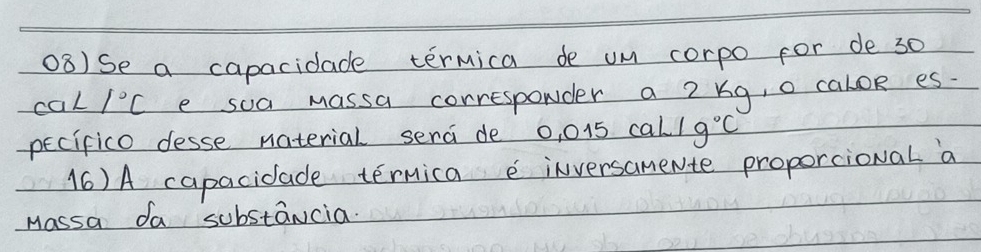 08) Se a capacidade térmica de um corpo for de 30
cal/°C e sua massa corresponder a 2 Kg, o calor es-
pecífico desse material será de 0,015 cal/g°C
16) A capacidade térmica é inversamente proporcional à
massa da substância.